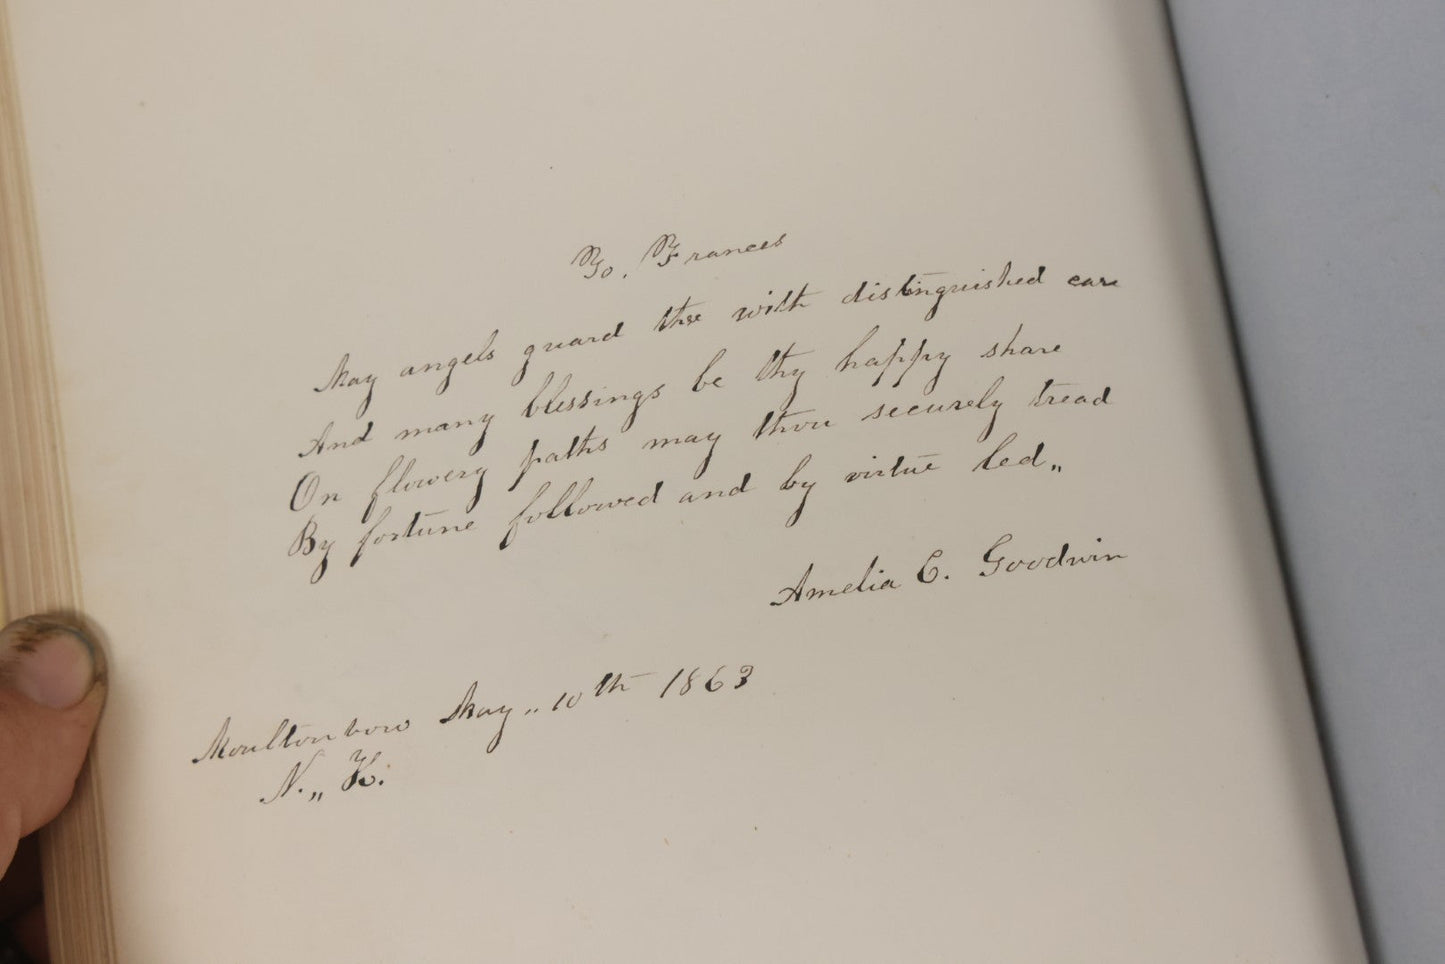 To. Frances
May angels guard thee with distinguished care
And many blessings be thy happy share
On flowery paths may thou securely tread
By fortune followed and by virtue led„
Amelia E. Goodwin
Moultonboro May„ 10th 1863
N.„ H.